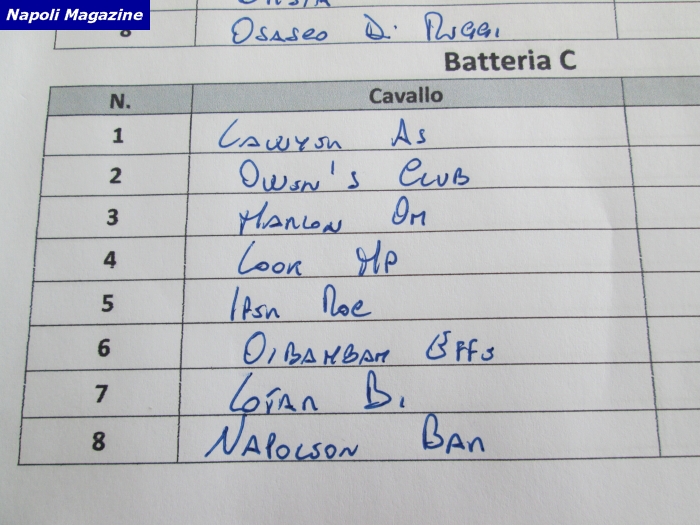 Napoli Magazine
8 OSASCO DI RUGGI
Batteria C
N. Cavallo
1 LAWYER AS
2 OWEN'S CLUB
3 MARLON OM
4 LOOK MP
5 IPER ROC
6 OIBAMBAM EFFE
7 LOTAR BI
8 NAPOLEON BAR